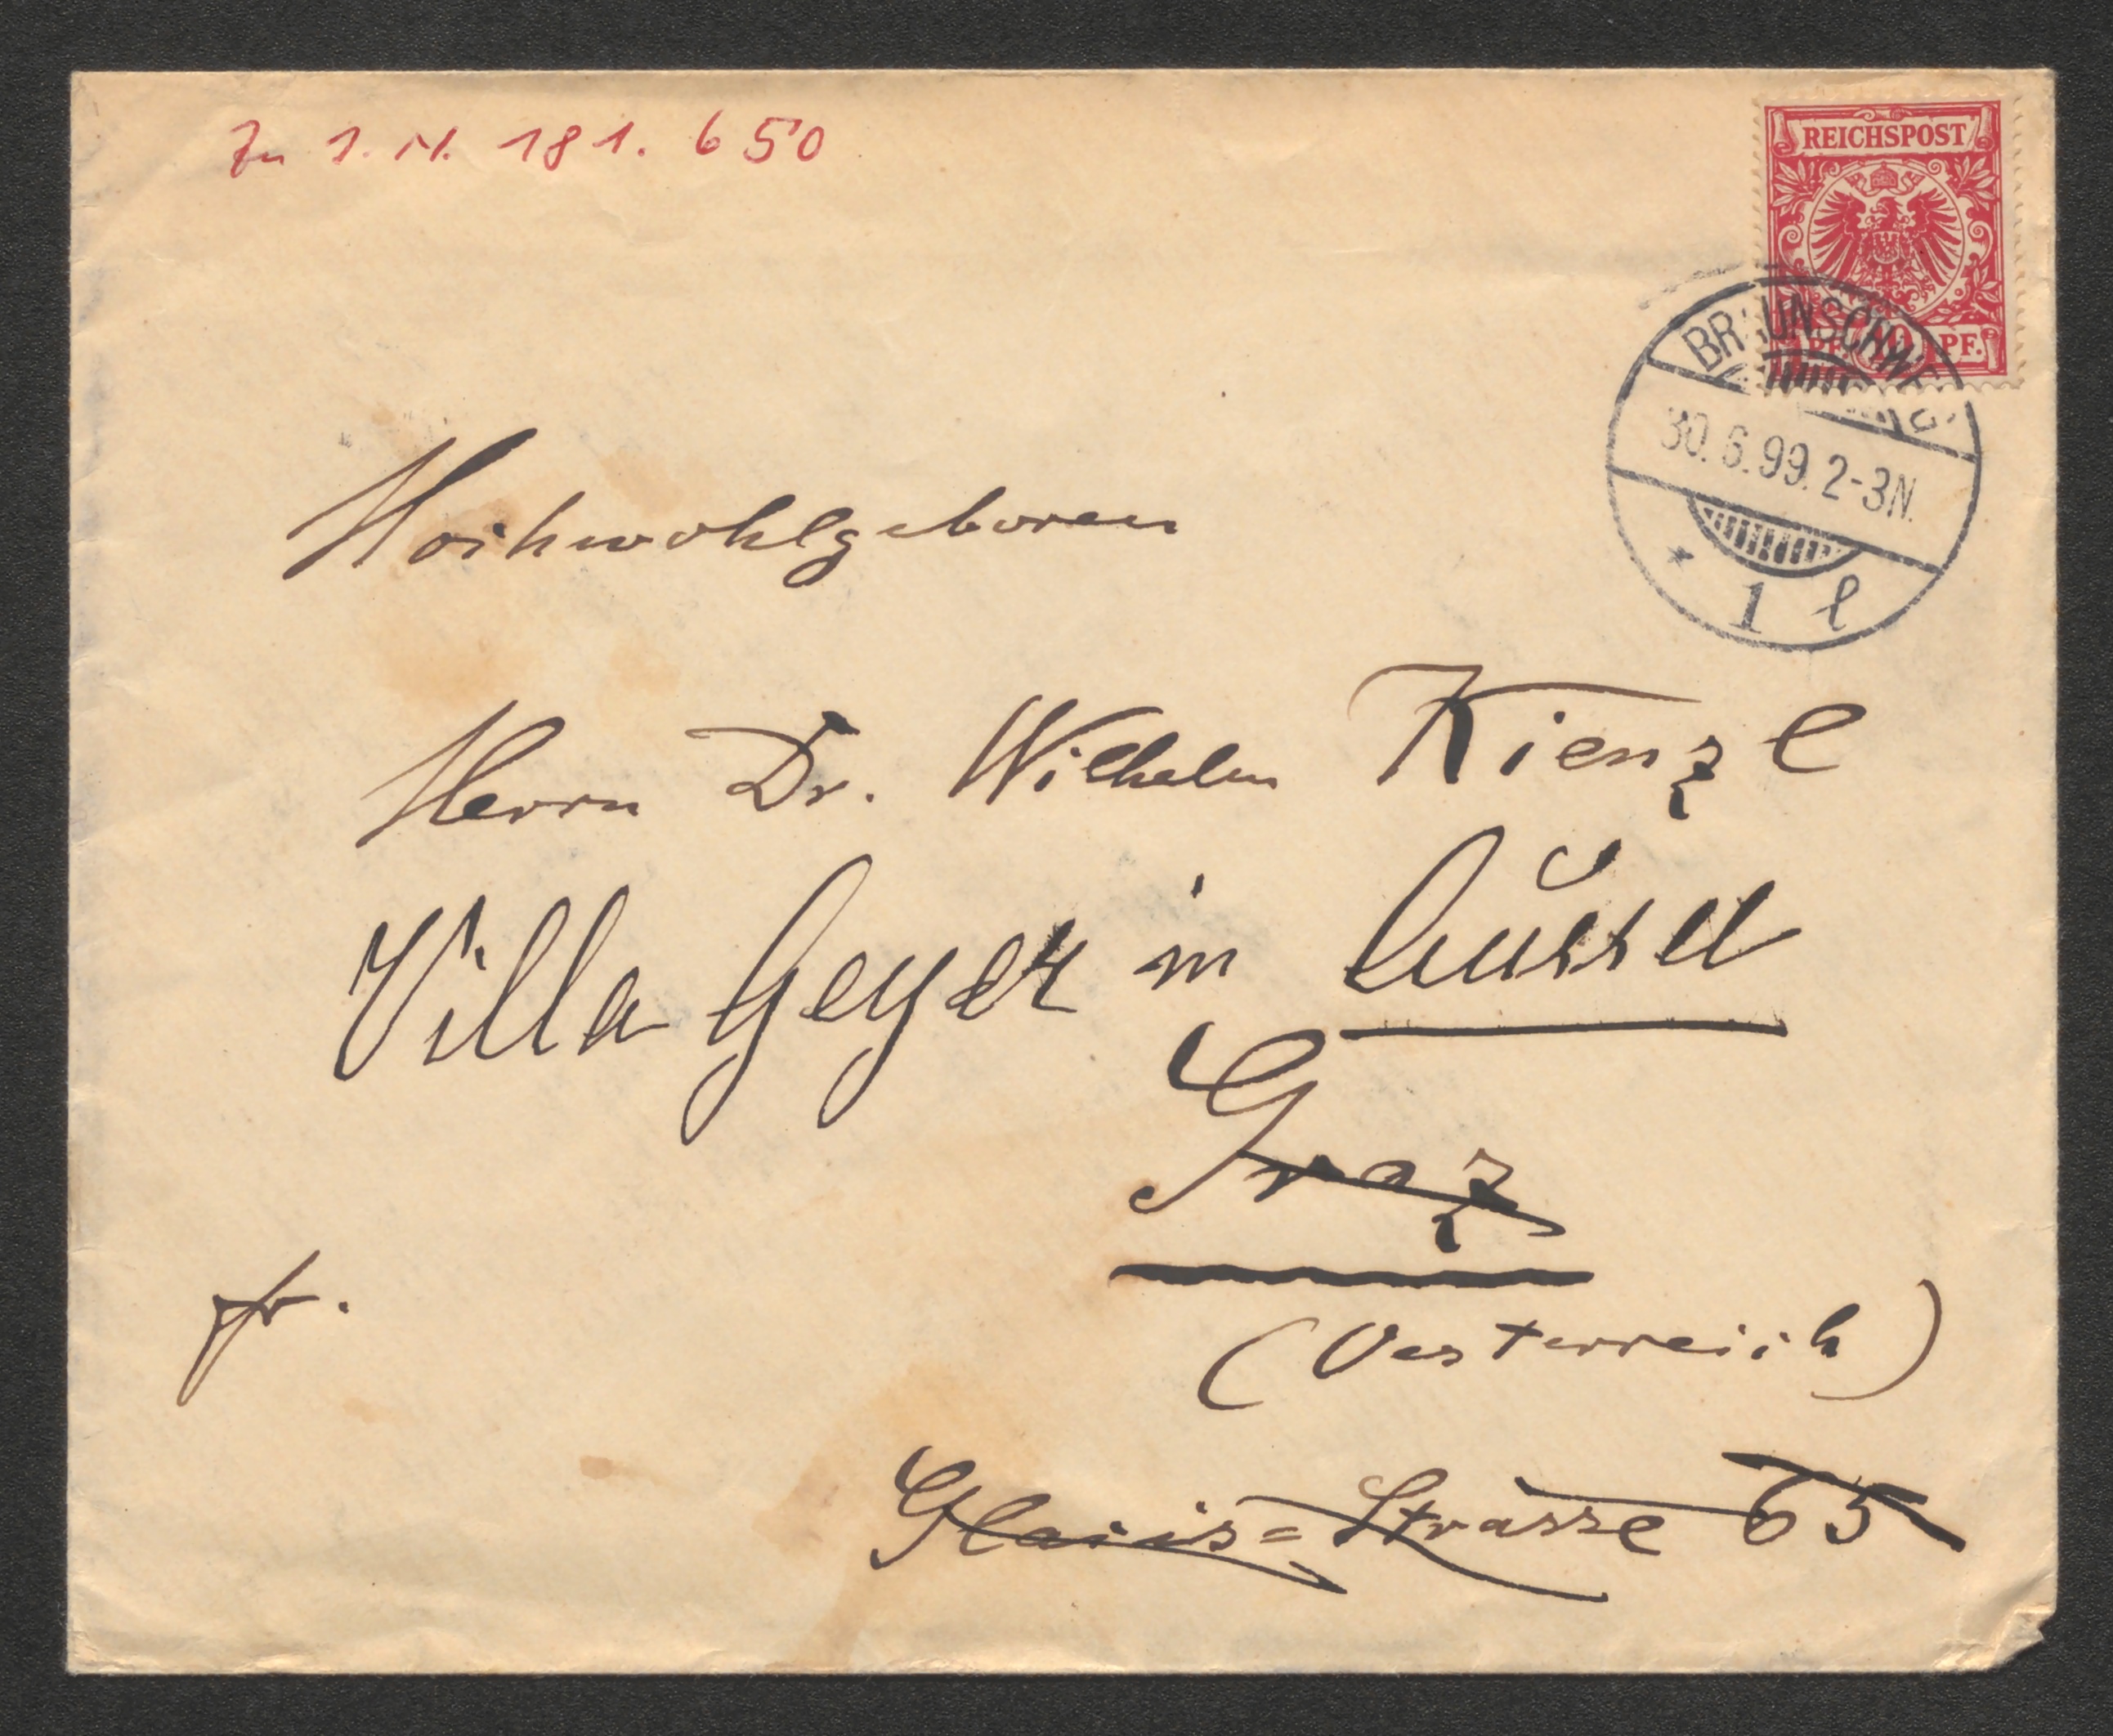 Zu I.N. 181.650
REICHSPOST
PF. 10 PF.
BRAUNSCHWEIG.
30.6.99. 2-3N.
* 1 l
Hochwohlgeboren
Herrn Dr. Wilhelm Kienzl
Villa Geyer in Aussee
Graz
(Oesterreich)
fr.
Glacis=Strasse 65